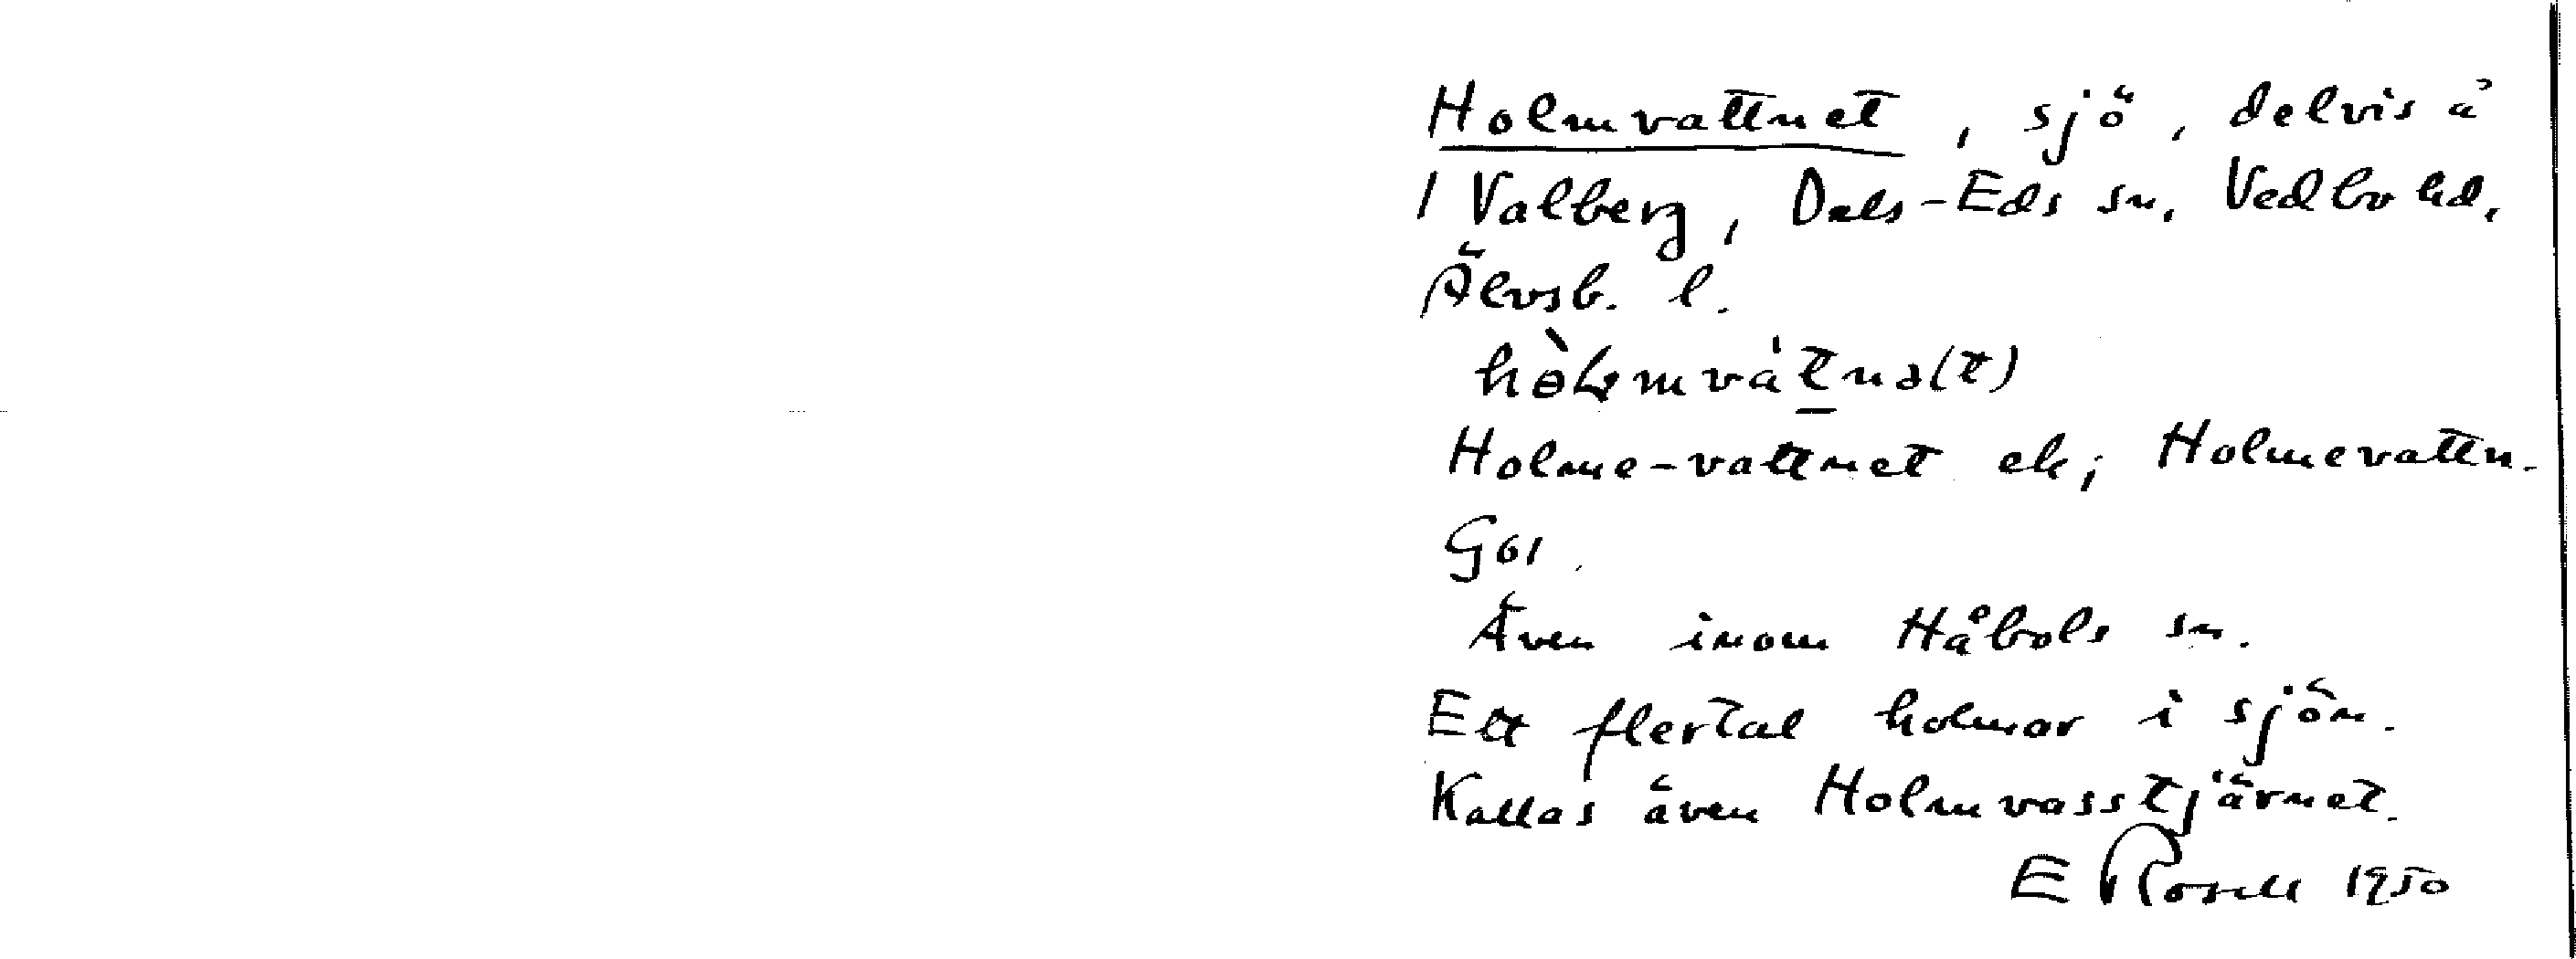 Holmvattnet, sjö, delvis å
1 Valberg, Dals-Eds sn, Vedbo hd,
Älvsb. l.
Holme-vattnet ek; Holmevattn.
GS1.
Även inom Håbols sn.
Ett flertal holmar i sjön.
Kallas även Holmvasstjärnet.
E Rosell 1950